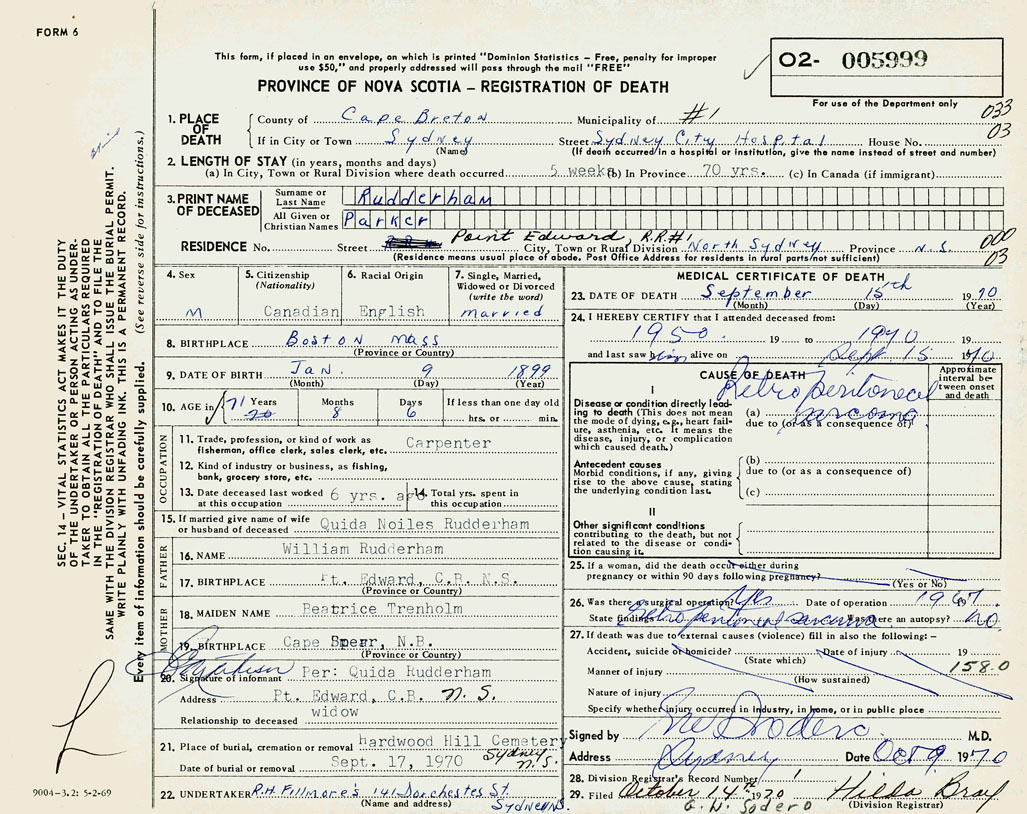 FORM 6
This form, if placed in an envelope, on which is printed "Dominion Statistics – Free, penalty for improper
use $50," and properly addressed will pass through the mail "FREE"
02- 005999
For use of the Department only
PROVINCE OF NOVA SCOTIA – REGISTRATION OF DEATH
033
03
1. PLACE OF DEATH
County of Cape Breton Municipality of #1
If in City or Town Sydney Street Sydney City Hospital House No.
(Name) (If death occurred in a hospital or institution, give the name instead of street and number)
2. LENGTH OF STAY (in years, months and days)
(a) In City, Town or Rural Division where death occurred 5 weeks (b) In Province 70 yrs. (c) In Canada (if immigrant)
3. PRINT NAME OF DECEASED
Surname or Last Name Rudderham
All Given or Christian Names Parker
RESIDENCE No. Street Point Edward, R.R.#1 City, Town or Rural Division North Sydney Province N.S.
000
03
(Residence means usual place of abode. Post Office Address for residents in rural parts not sufficient)
4. Sex
M
5. Citizenship
(Nationality)
Canadian
6. Racial Origin
English
7. Single, Married,
Widowed or Divorced
(write the word)
married
8. BIRTHPLACE Boston Mass
(Province or Country)
9. DATE OF BIRTH Jan. 9 1899
(Month) (Day) (Year)
10. AGE in 71 Years Months 8 Days 6 If less than one day old
hrs. or min.
OCCUPATION
11. Trade, profession, or kind of work as
fisherman, office clerk, sales clerk, etc. Carpenter
12. Kind of industry or business, as fishing,
bank, grocery store, etc.
13. Date deceased last worked
at this occupation 6 yrs. ago
14 Total yrs. spent in
this occupation
15. If married give name of wife
or husband of deceased Quida Noiles Rudderham
FATHER
16. NAME William Rudderham
17. BIRTHPLACE Pt. Edward, C.B. N.S.
(Province or Country)
MOTHER
18. MAIDEN NAME Beatrice Trenholm
19. BIRTHPLACE Cape Spear, N.B.
(Province or Country)
20. Signature of informant Per: Quida Rudderham
Address Pt. Edward, C.B. N.S.
Relationship to deceased widow
21. Place of burial, cremation or removal hardwood Hill Cemetery
Sydney N.S.
Date of burial or removal Sept. 17, 1970
22. UNDERTAKER R.H. Fillmore's 141 Dorchester St.
(Name and address) Sydney N.S.
MEDICAL CERTIFICATE OF DEATH
23. DATE OF DEATH September 15th 1970
(Month) (Day) (Year)
24. I HEREBY CERTIFY that I attended deceased from:
1950 19 to 1970 19
and last saw him alive on Sept 15 1970
CAUSE OF DEATH
Approximate
interval be-
tween onset
and death
I
Disease or condition directly lead-
ing to death (This does not mean
the mode of dying, e.g., heart fail-
ure, asthenia, etc. It means the
disease, injury, or complication
which caused death.)
(a) Retroperitoneal sarcoma
due to (or as a consequence of)
Antecedent causes
Morbid conditions, if any, giving
rise to the above cause, stating
the underlying condition last.
(b)
due to (or as a consequence of)
(c)
II
Other significant conditions
contributing to the death, but not
related to the disease or condi-
tion causing it.
25. If a woman, did the death occur either during
pregnancy or within 90 days following pregnancy?
(Yes or No)
26. Was there a surgical operation? Yes Date of operation 1967 19
State findings Retroperitoneal sarcoma Was there an autopsy? no
27. If death was due to external causes (violence) fill in also the following: –
Accident, suicide or homicide? Date of injury 19
(State which)
Manner of injury 158.0
(How sustained)
Nature of injury
Specify whether injury occurred in industry, in home, or in public place
Signed by M.D.
Address Sydney Date Oct 9 1970
28. Division Registrar's Record Number
29. Filed October 14th 1970 Hilda Bray
(Division Registrar)
G. N. Sodero
SEC. 14 – VITAL STATISTICS ACT MAKES IT THE DUTY
OF THE UNDERTAKER OR PERSON ACTING AS UNDER-
TAKER TO OBTAIN ALL THE PARTICULARS REQUIRED
IN THE "REGISTRATION OF DEATH" AND TO FILE THE
SAME WITH THE DIVISION REGISTRAR WHO SHALL ISSUE THE BURIAL PERMIT.
WRITE PLAINLY WITH UNFADING INK. THIS IS A PERMANENT RECORD.
Every item of information should be carefully supplied. (See reverse side for instructions.)
9004-3.2: 5-2-69